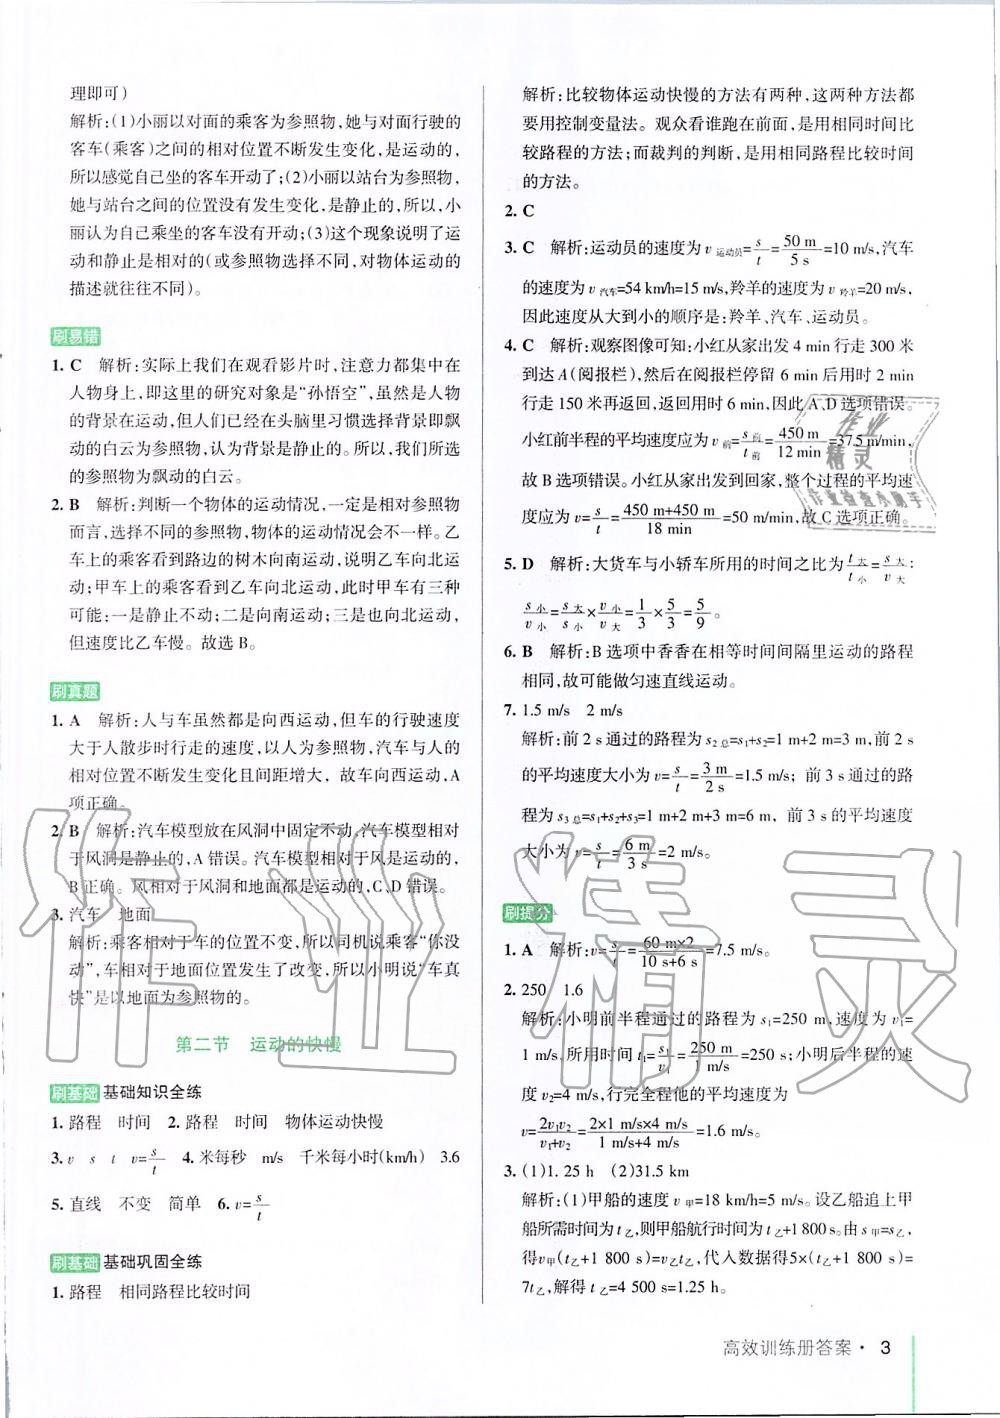 理即可)
解析:(1)小丽以对面的乘客为参照物,她与对面行驶的
客车(乘客)之间的相对位置不断发生变化,是运动的,
所以感觉自己坐的客车开动了;(2)小丽以站台为参照物,
她与站台之间的位置没有发生变化,是静止的,所以,小
丽认为自己乘坐的客车没有开动;(3)这个现象说明了运
动和静止是相对的(或参照物选择不同,对物体运动的
描述就往往不同)。
刷易错
1. C 解析:实际上我们在观看影片时,注意力都集中在
人物身上,即这里的研究对象是“孙悟空”,虽然是人物
的背景在运动,但人们已经在头脑里习惯选择背景即飘
动的白云为参照物,认为背景是静止的。所以,我们所选
的参照物为飘动的白云。
2. B 解析:判断一个物体的运动情况,一定是相对参照物
而言,选择不同的参照物,物体的运动情况会不一样。乙
车上的乘客看到路边的树木向南运动,说明乙车在向北
运动;甲车上的乘客看到乙车向北运动,此时甲车有三种
可能:一是静止不动;二是向南运动;三是也向北运动,
但速度比乙车慢。故选 B。
刷真题
1. A 解析:人与车虽然都是向西运动,但车的行驶速度
大于人散步时行走的速度,以人为参照物,汽车与人的
相对位置不断发生变化且间距增大,故车向西运动,A
项正确。
2. B 解析:汽车模型放在风洞中固定不动,汽车模型相对
于风洞是静止的,A 错误。汽车模型相对于风是运动的,
B 正确。风相对于风洞和地面都是运动的,C、D 错误。
3. 汽车 地面
解析:乘客相对于车的位置不变,所以司机说乘客“你没
动”,车相对于地面位置发生了改变,所以小明说“车真
快”是以地面为参照物的。
第二节 运动的快慢
刷基础 基础知识全练
1. 路程 时间 2. 路程 时间 物体运动快慢
3. v s t v=s/t 4. 米每秒 m/s 千米每小时(km/h) 3.6
5. 直线 不变 简单 6. v=s/t
刷基础 基础巩固全练
1. 路程 相同路程比较时间
解析:比较物体运动快慢的方法有两种,这两种方法都
要用控制变量法。观众看谁跑在前面,是用相同时间比
较路程的方法;而裁判的判断,是用相同路程比较时间
的方法。
2. C
3. C 解析:运动员的速度为 v运动员=s/t=50 m/5 s=10 m/s,汽车
的速度为 v汽车=54 km/h=15 m/s,羚羊的速度为 v羚羊=20 m/s,
因此速度从大到小的顺序是:羚羊、汽车、运动员。
4. C 解析:观察图像可知:小红从家出发 4 min 行走 300 米
到达 A(阅报栏),然后在阅报栏停留 6 min 后用时 2 min
行走 150 米再返回,返回用时 6 min,因此 A、D 选项错误。
小红前半程的平均速度应为 v前=s前/t前=450 m/12 min=37.5 m/min,
故 B 选项错误。小红从家出发到回家,整个过程的平均速
度应为 v=s/t=450 m+450 m/18 min=50 m/min,故 C 选项正确。
5. D 解析:大货车与小轿车所用的时间之比为 t大/t小=s大/v大:
s小/v小=s大/s小×v小/v大=1/3×5/3=5/9。
6. B 解析:B 选项中香香在相等时间间隔里运动的路程
相同,故可能做匀速直线运动。
7. 1.5 m/s 2 m/s
解析:前 2 s 通过的路程为 s2总=s1+s2=1 m+2 m=3 m,前 2 s
的平均速度大小为 v=s/t=3 m/2 s=1.5 m/s;前 3 s 通过的路
程为 s3总=s1+s2+s3=1 m+2 m+3 m=6 m,前 3 s 的平均速度
大小为 v=s/t=6 m/3 s=2 m/s。
刷提分
1. A 解析:v=s/t=60 m×2/10 s+6 s=7.5 m/s。
2. 250 1.6
解析:小明前半程通过的路程为 s1=250 m,速度为 v1=
1 m/s,所用时间 t=s1/v1=250 m/1 m/s=250 s;小明后半程的速
度 v2=4 m/s,行完全程他的平均速度为
v=2v1v2/v1+v2=2×1 m/s×4 m/s/1 m/s+4 m/s=1.6 m/s。
3. (1)1.25 h (2)31.5 km
解析:(1)甲船的速度 v甲=18 km/h=5 m/s。设乙船追上甲
船所需时间为 t乙,则甲船航行时间为 t乙+1 800 s。由 s甲=s乙,
得v甲(t乙+1 800 s)=v乙t乙,代入数据得5×(t乙+1 800 s)=
7t乙,解得 t乙=4 500 s=1.25 h。
高效训练册答案 · 3
作业精灵
作业
精灵
作业检查小助手